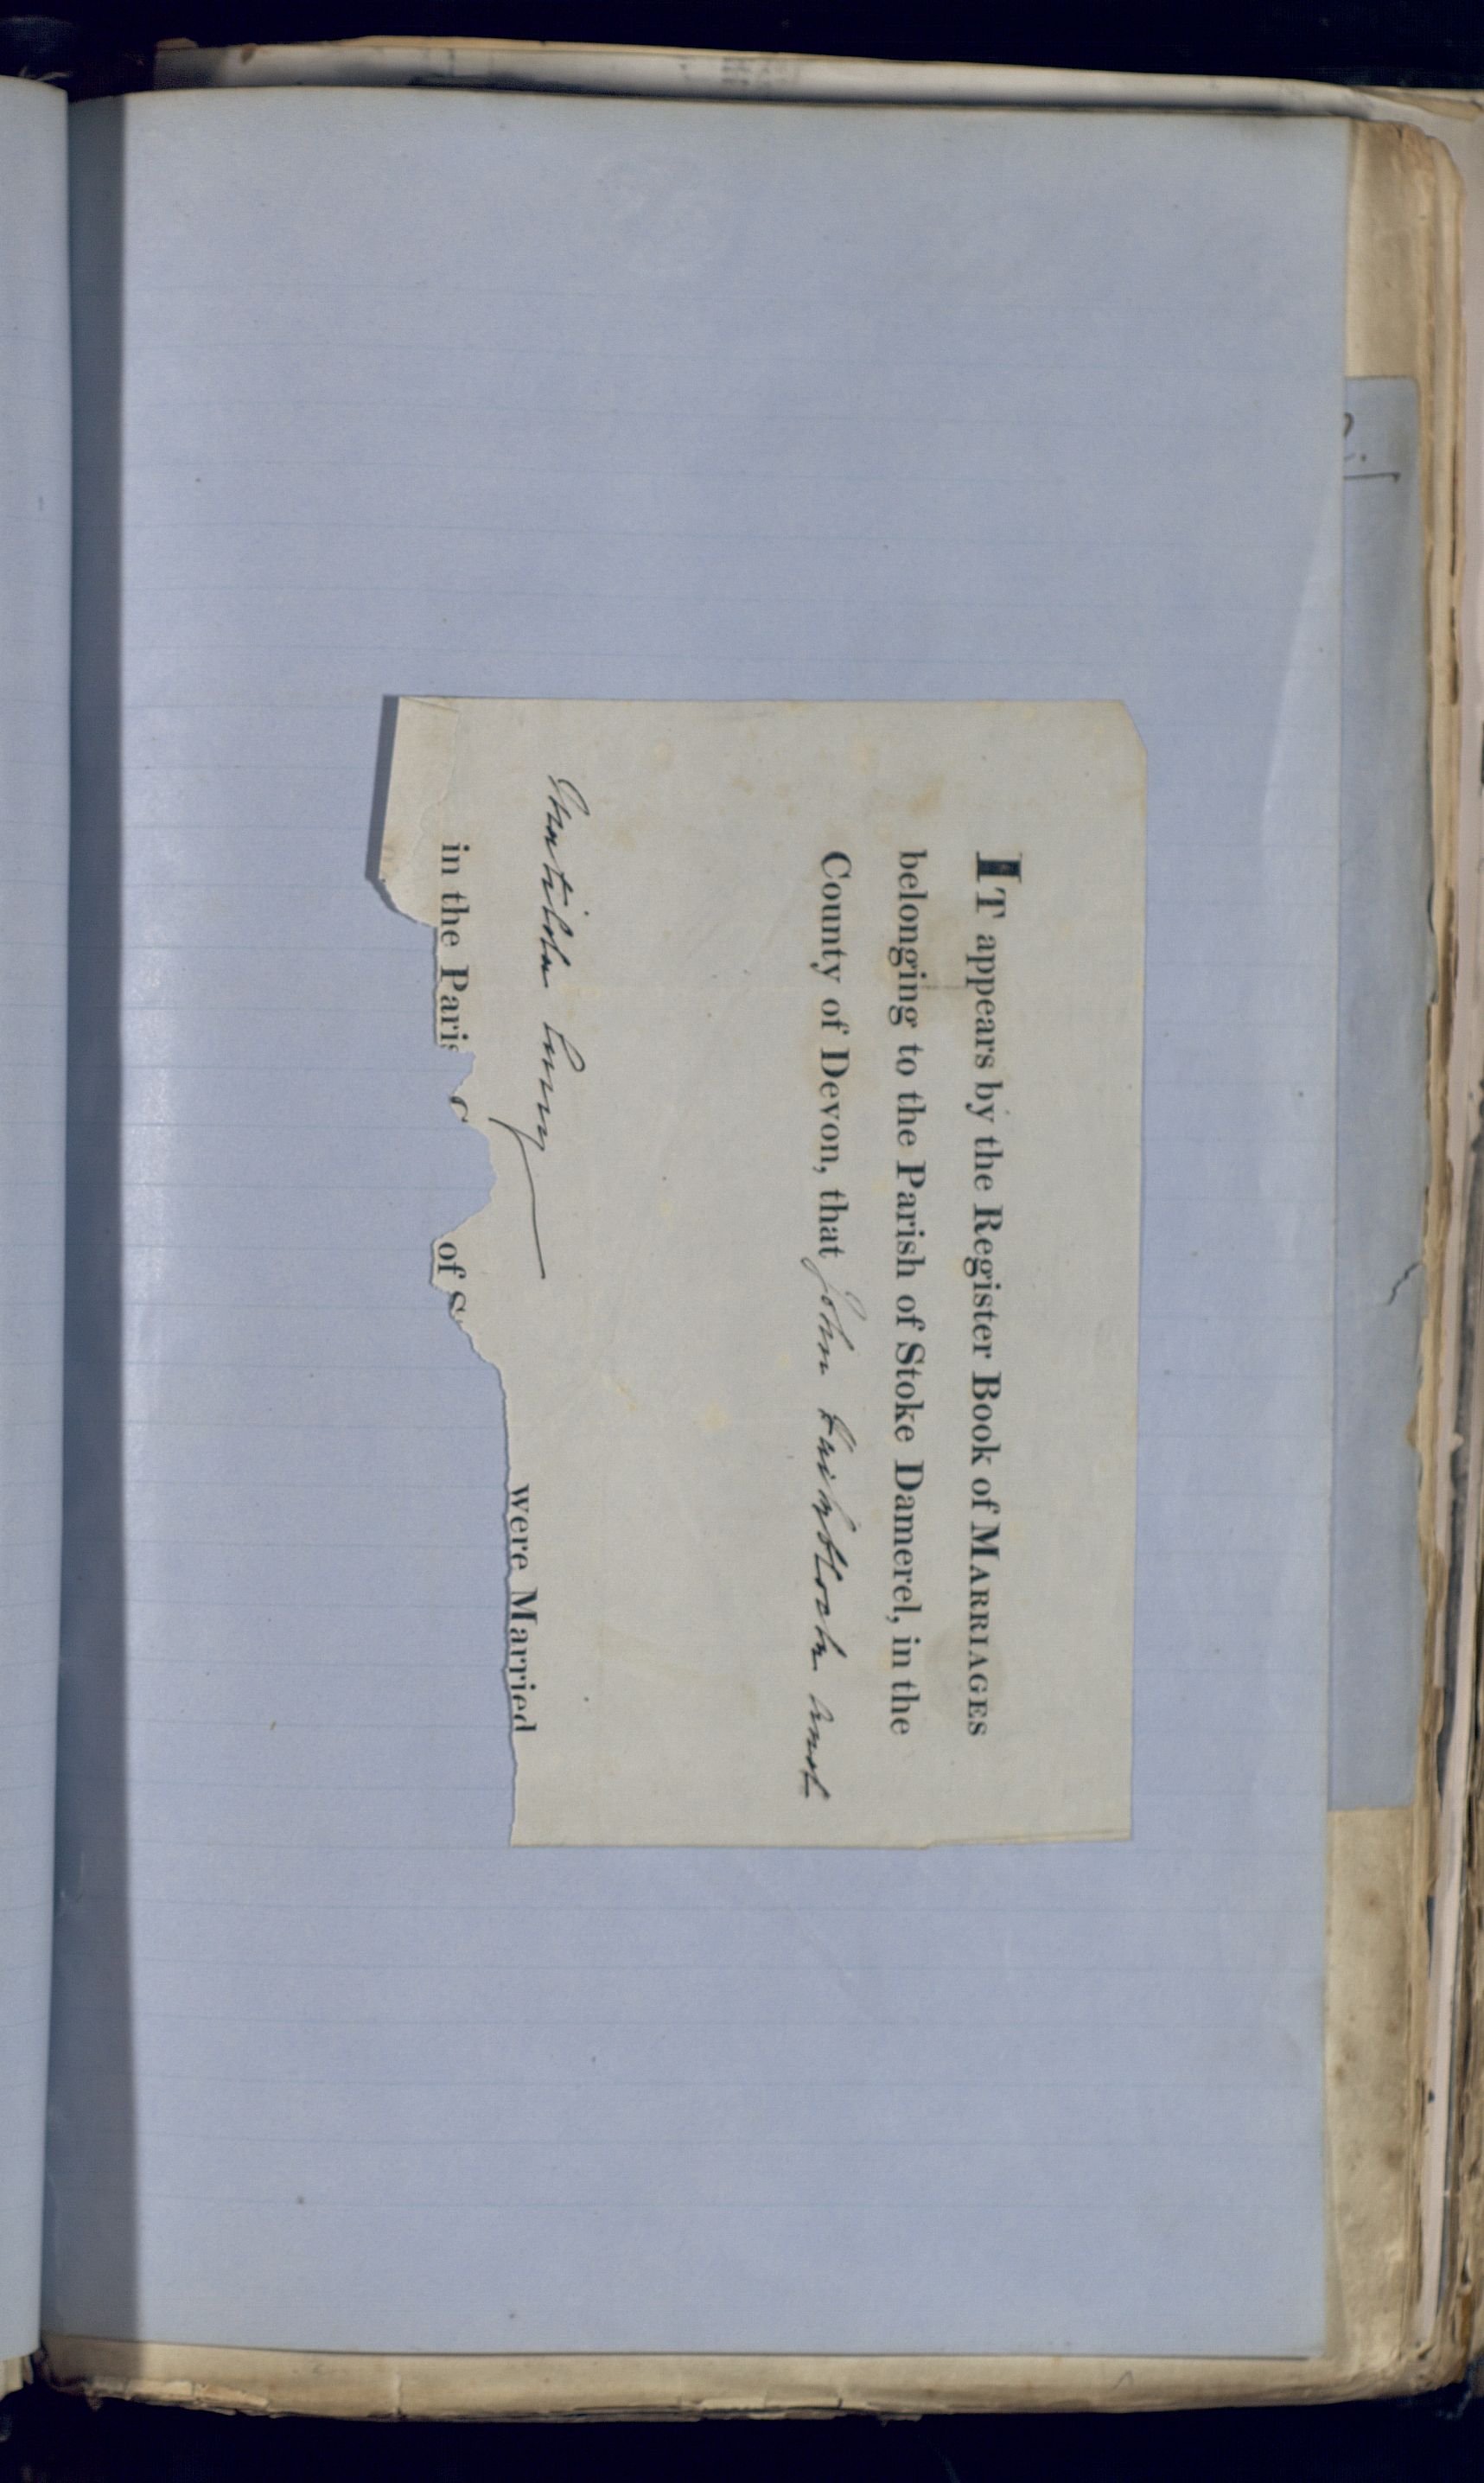 IT appears by the Register Book of MARRIAGES
belonging to the Parish of Stoke Damerel, in the
County of Devon, that John and
Matilda
were Married
in the Paris
of S